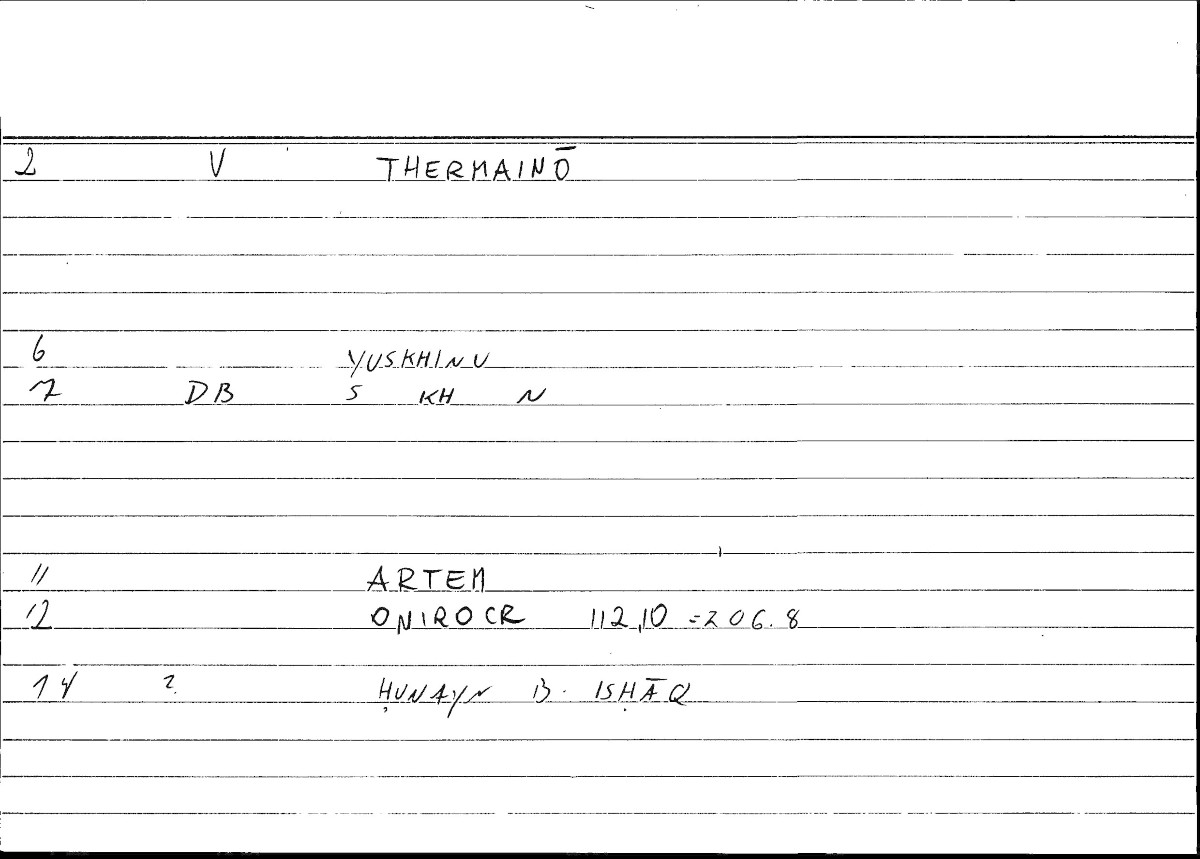 2 V THERMAINŌ
6 YUSKHINU
7 DB S KH N
11 ARTEM
12 ONIROCR 112,10 =206.8
14 ? ḤUNAYN B. ISḤĀQ